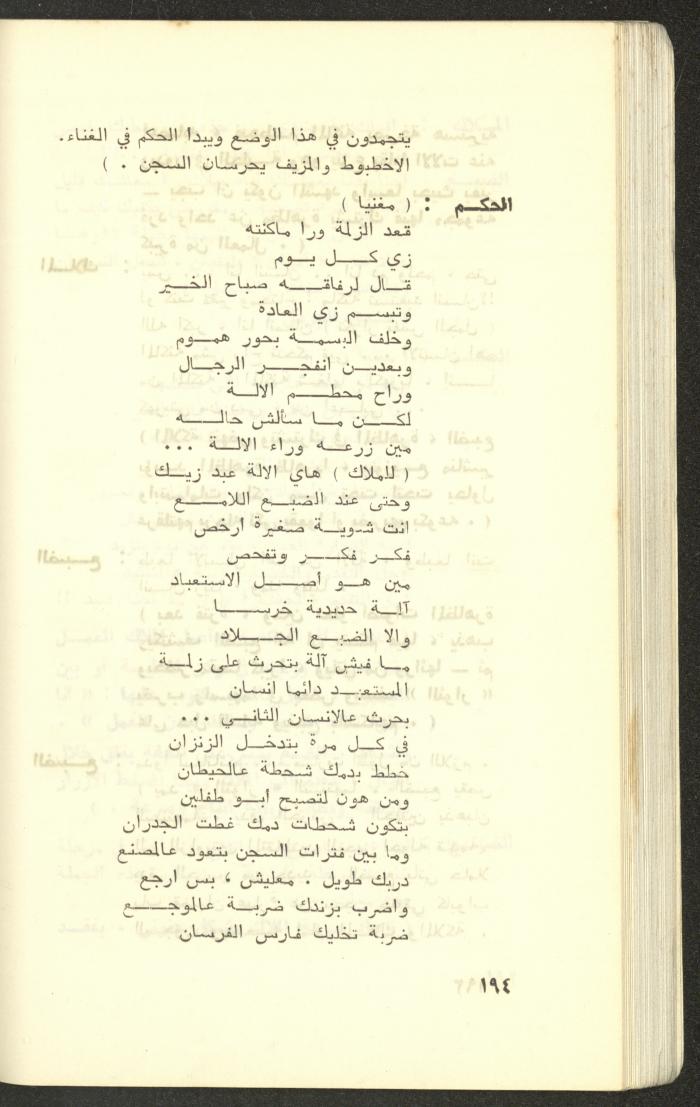 يتجمدون في هذا الوضع ويبدا الحكم في الغناء.
الاخطبوط والمزيف يحرسان السجن . )
الحكم : ( مغنيا )
قعد الزلمة ورا ماكنته
زي كل يوم
قال لرفاقه صباح الخير
وتبسم زي العادة
وخلف البسمة بحور هموم
وبعدين انفجر الرجال
وراح محطم الالة
لكن ما سألش حاله
مين زرعه وراء الالة ...
( للملاك ) هاي الالة عبد زيك
وحتى عند الضبع اللامع
انت شوية صغيرة ارخص
فكر فكر وتفحص
مين هو أصل الاستعباد
آلة حديدية خرسا
والا الضبع الجلاد
ما فيش آلة بتحرث على زلمة
المستعبد دائما انسان
بحرث عالانسان الثاني ...
في كل مرة بتدخل الزنزان
خطط بدمك شحطة عالحيطان
ومن هون لتصبح أبو طفلين
بتكون شحطات دمك غطت الجدران
وما بين فترات السجن بتعود عالمصنع
دربك طويل . معليش ، بس ارجع
واضرب بزندك ضربة عالموجع
ضربة تخليك فارس الفرسان
١٩٤